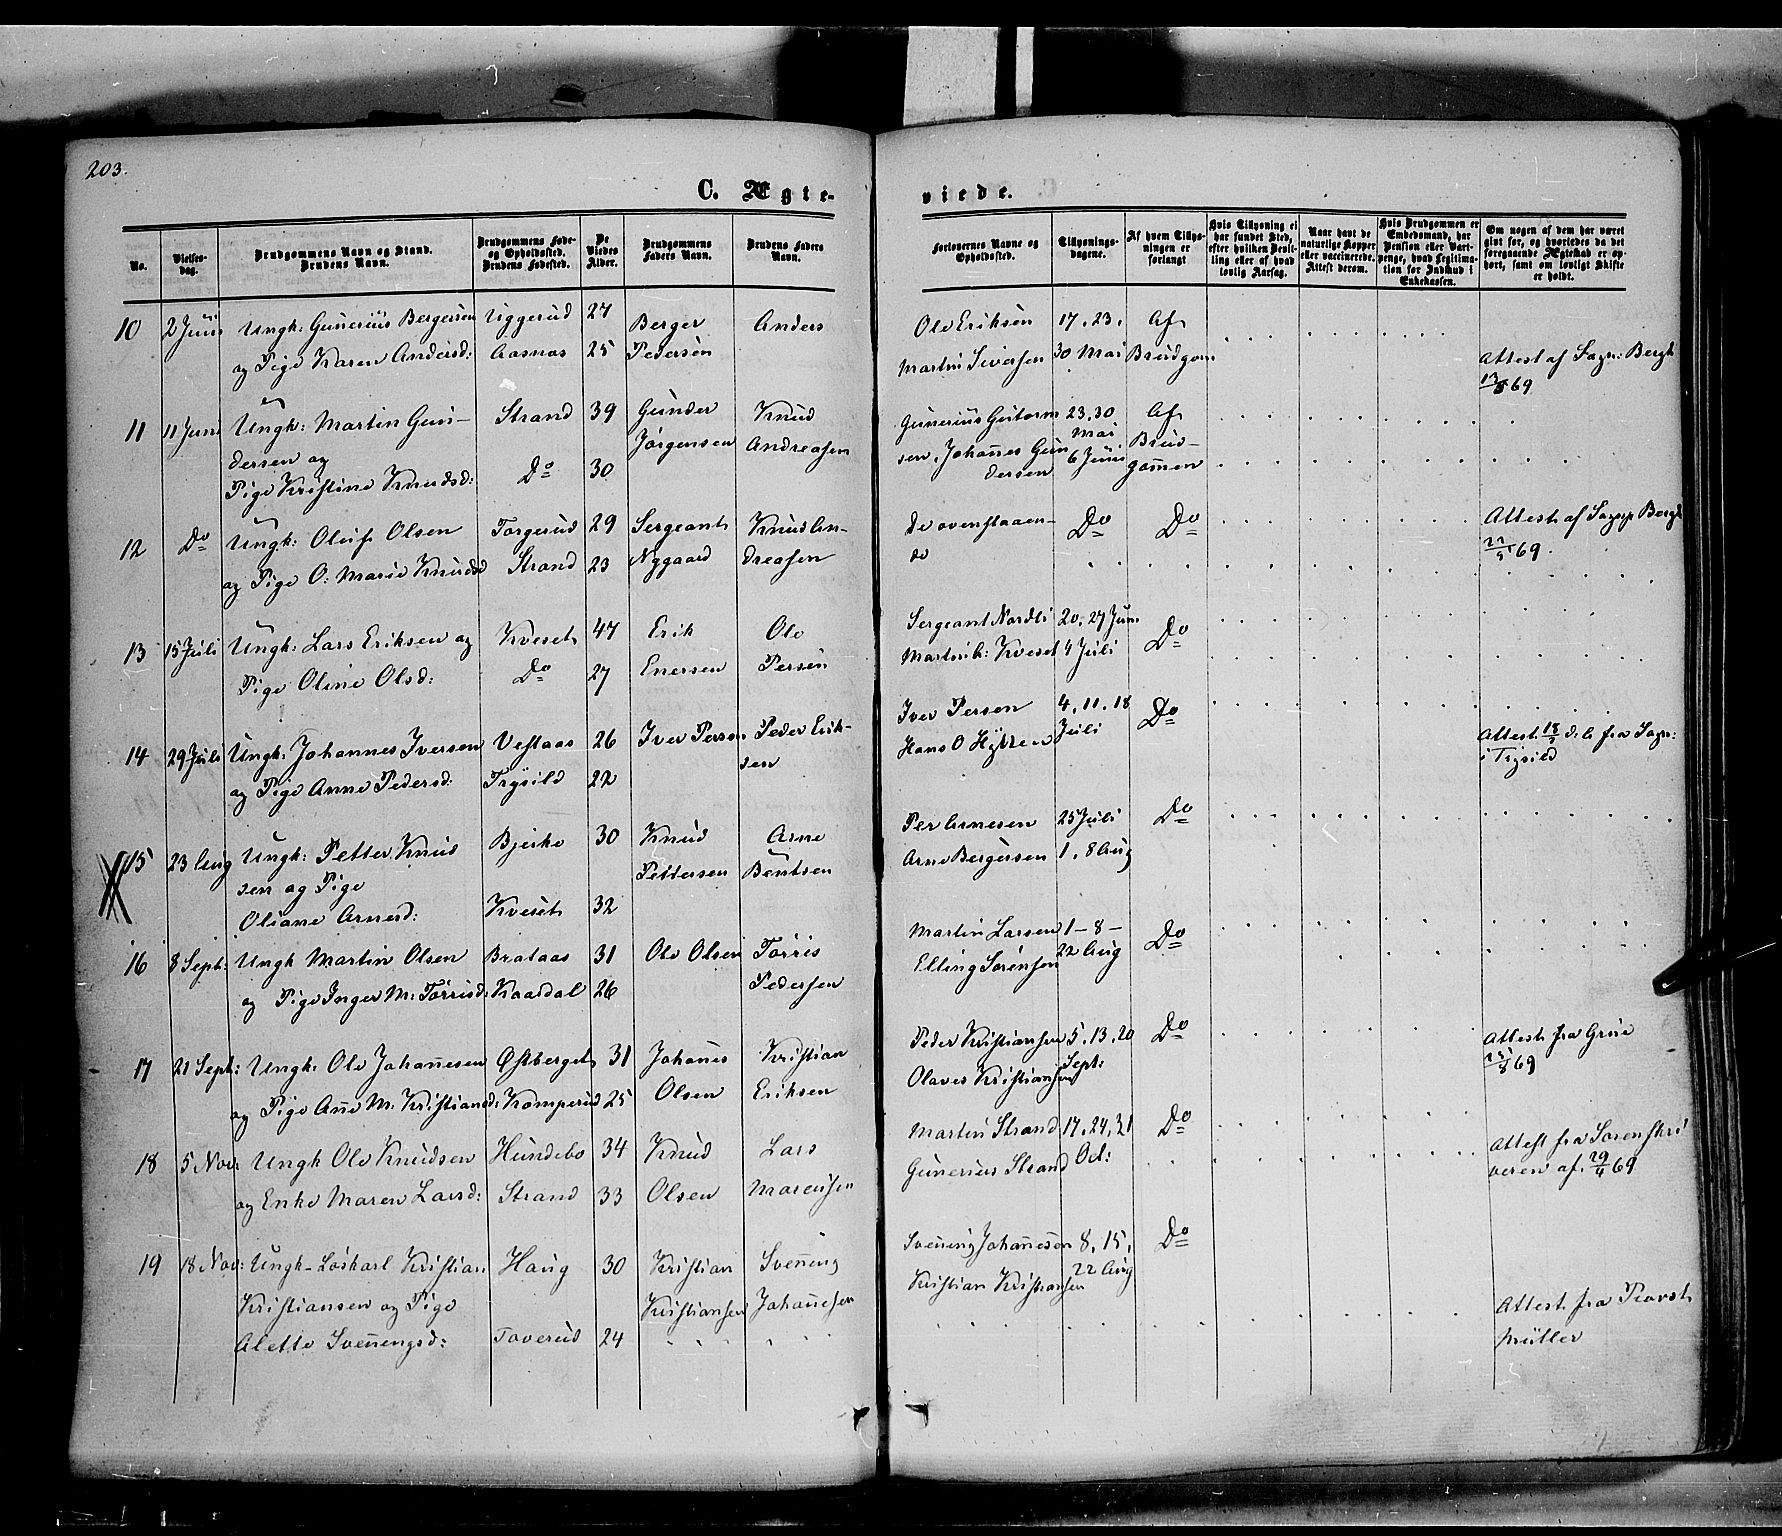 203.
C. Ægte-
viede.
No.
Vielses-
dag.
Brudgommens Navn og Stand.
Brudens Navn.
Brudgommens Føde-
og Opholdssted.
Brudens Fødested.
De
Viedes
Alder.
Brudgommens
Faders Navn.
Brudens Faders
Navn.
Forlovernes Navne og
Opholdssted.
Tillysnings-
dagene.
Af hvem Tillys-
ningen er
forlangt
Hvis Tillysning ei
har fundet Sted,
efter hvilken Bevil-
ling eller af hvad
lovlig Aarsag.
Naar havt de
naturlige Kopper
eller vaccinerede.
Attest derom.
Hvis Brudgommen er
Embedsmand, har
Pension eller Vart-
penge, hvad Legitima-
tion for Indskud i
Enkekassen.
Om nogen af dem har været
gift før, og hvorledes da det
foregaaende Ægteskab er op-
hørt, samt om lovligt Skifte
er holdt.
10 2 Juni Ungk: Gunerius Bergersen Uggerud 27 Berger Anders Ole Eriksen 17, 23, Af
og Pige Karen Andersd: Aasnæs 25 Pedersen Martin Siversen 30 Mai Brudgom Attest af Sogn: Bergh
69
11 11 Juni Ungk: Martin Gun- Strand 39 Gunder Knud Gunerius Gutorm 23, 30 Af
dersen og Jørgensen Andreasen sen, Johannes Gun Mai Brud-
Pige Kristine Knudsd: Do 30 dersen 6 Juni gommen
12 Do Ungk: Oluf Olsen Torgerud 29 Sergeant Knud An- De ovenstaaen- Do Do Attest af Sogp Bergh
og Pige O: Marie Knudsd Strand 23 Nygaard dreasen de 69.
13 15 Juli Ungk: Lars Eriksen og Kveset 47 Erik Ole Sergeant Nordli 20, 27 Juni Do
Pige Oline Olsd: Do 27 Enersen Persen Martin Kveset 4 Juli
14 29 Juli Ungk: Johannes Iversen Vestaas 26 Iver Persen Peder Erik- Iver Persen 4, 11, 18 Do
og Pige Anne Pedersd: Trysild 22 sen Hans O Hytten Juli Attest d. å fra Sogn:
i Trysild
15 23 Aug Ungk: Petter Knud Bjerke 30 Knud Arne Per Arnesen 25 Juli Do
sen og Pige Pettersen Bentsen Arne Bergersen 1, 8 Aug
Oliane Arnesd: Kveset 32
16 8 Sept: Ungk Martin Olsen Brataas 31 Ole Olsen Tørris Martin Larsen 1 - 8 - Do
og Pige Inger M: Tørrisd: Kaardal 26 Pedersen Elling Sørensen 22 Aug
17 21 Sept: Ungk: Ole Johannesen Østberget 31 Johanes Kristian Peder Kristiansen 5, 13, 20 Do Attest fra Grue
og Pige Anne M: Kristiansd: Komperud 25 Olsen Eriksen Olaves Kristiansen Sept: 69
18 5 Nov: Ungk Ole Knudsen Hundebo 34 Knud Lars Martin Strand 17, 24, 31 Do Attest fra Sorenskri
og Enke Maren Larsd: Strand 33 Olsen Marensen Gunerius Strand Oct: veren af. 69
19 18 Nov: Ungk- Løskarl Kristian Haug 30 Kristian Svenning Svenning Johannesen 8, 15, Do
Kristiansen og Pige Kristiansen Johannesen Kristian Kristiansen 22 Aug Attest fra Provst
Alette Svenningsd: Taverud 24 Müller